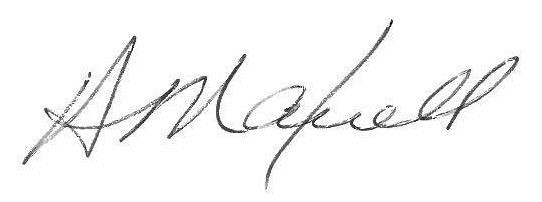 A Maxwell